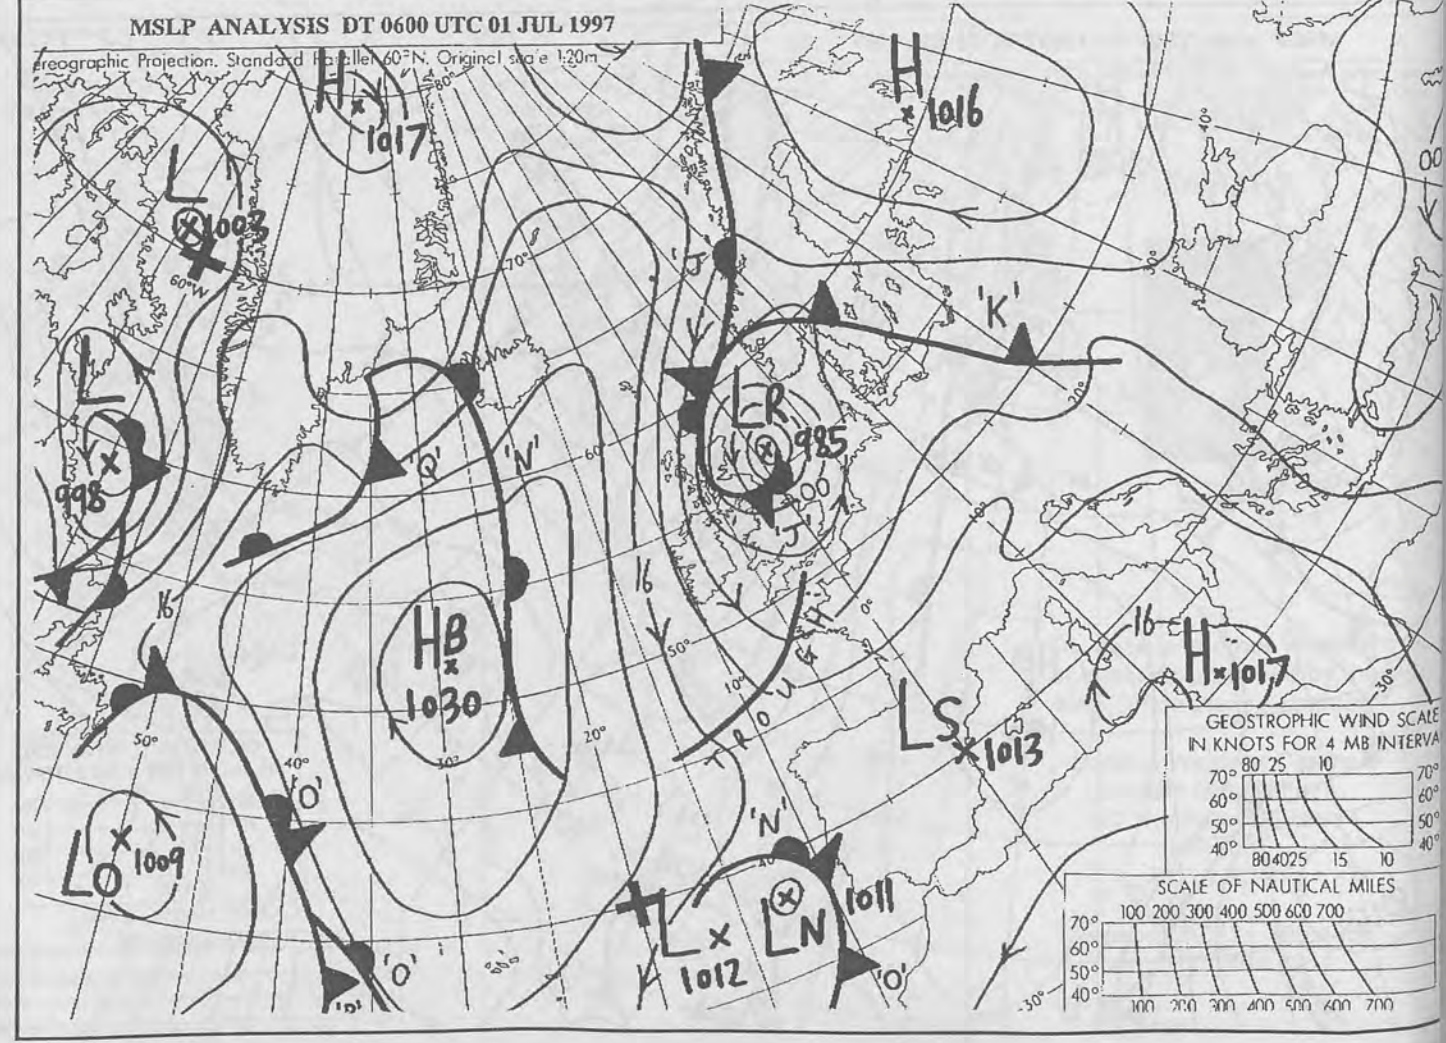 MSLP ANALYSIS DT 0600 UTC 01 JUL 1997
ereographic Projection. Standard Parallel 60°N. Original scale 1:20m
80°
H
1017
H
1016
40°
00
L
1003
60°W
70°
'J'
30°
'K'
L
998
'Q'
'N'
60°
L R
985
00
'J'
20°
10°
16
16
H B
1030
0°
TROUGH
50°
10°
16
H
1017
30°
L S
1013
50°
40°
30°
20°
'O'
L O
1009
'N'
40°
L
1012
L N
1011
'O'
'O'
'P'
30°
GEOSTROPHIC WIND SCALE
IN KNOTS FOR 4 MB INTERVA
80 25 10
70° 70°
60° 60°
50° 50°
40° 40°
80 40 25 15 10
SCALE OF NAUTICAL MILES
100 200 300 400 500 600 700
70°
60°
50°
40°
100 200 300 400 500 600 700